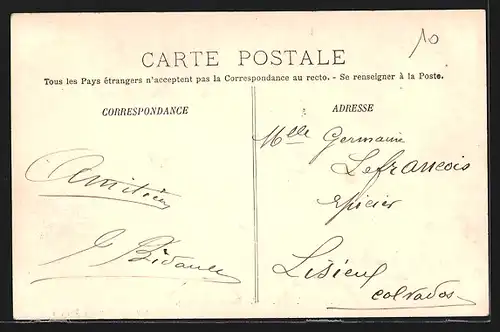 10
CARTE POSTALE
Tous les Pays étrangers n'acceptent pas la Correspondance au recto. - Se renseigner à la Poste.
CORRESPONDANCE
Amitiés
ADRESSE
Mlle Germaine
Lefrancois
epicier
Lisieux
calvados